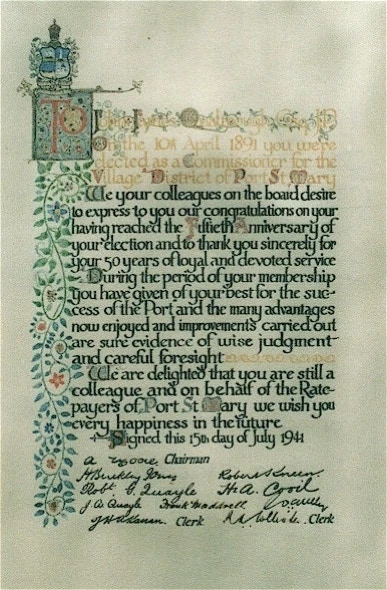 To
On the 10th April 1891 you were
elected as a Commissioner for the
Village District of Port St Mary
We your colleagues on the board desire
to express to you our congratulations on your
having reached the Fiftieth Anniversary of
your election and to thank you sincerely for
your 50 years of loyal and devoted service
During the period of your membership
you have given of your best for the suc-
cess of the Port and the many advantages
now enjoyed and improvements carried out
are sure evidence of wise judgment
and careful foresight
We are delighted that you are still a
colleague and on behalf of the Rate-
payers of Port St Mary we wish you
every happiness in the future
Signed this 15th day of July 1941
A Chairman
Robt Quayle H.A. Cooil
J A Quayle Frank Maddrell
Clerk Clerk